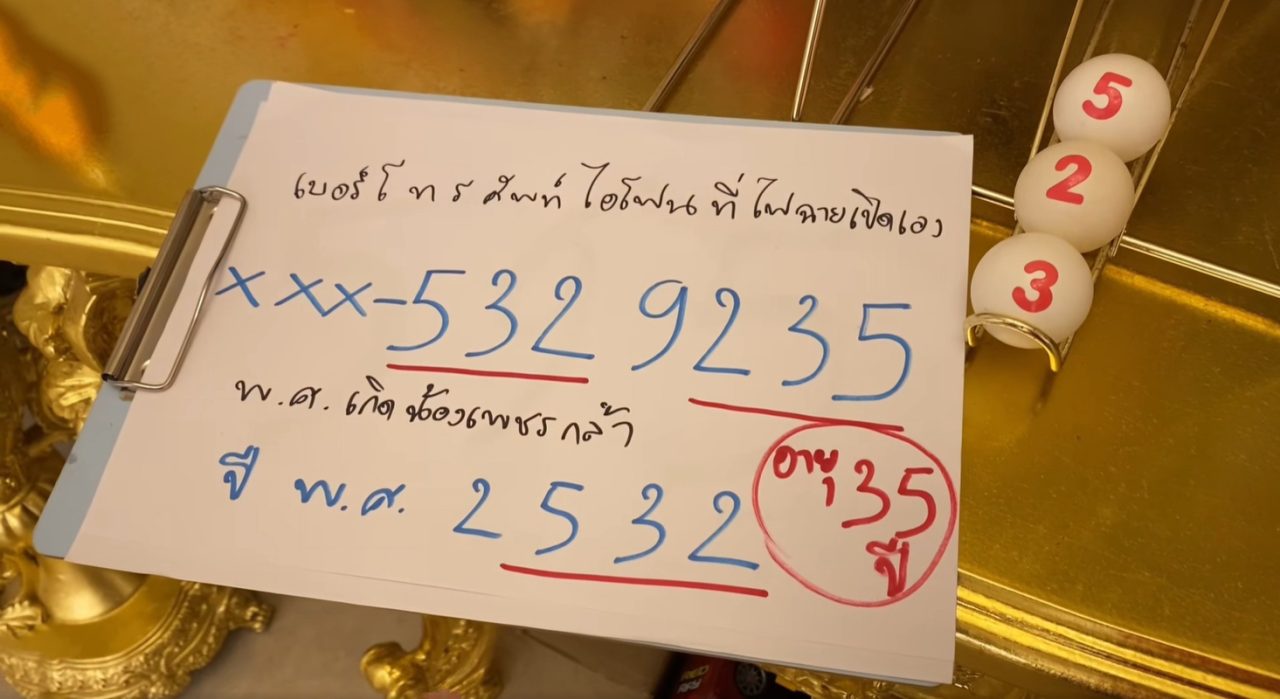 เบอร์โทรศัพท์ไอโฟนที่ไฟฉายเปิดเอง
xxx-532 9235
พ.ศ.เกิดน้องเพชรกล้า
ปี พ.ศ. 2532
อายุ 35
ปี
5
2
3